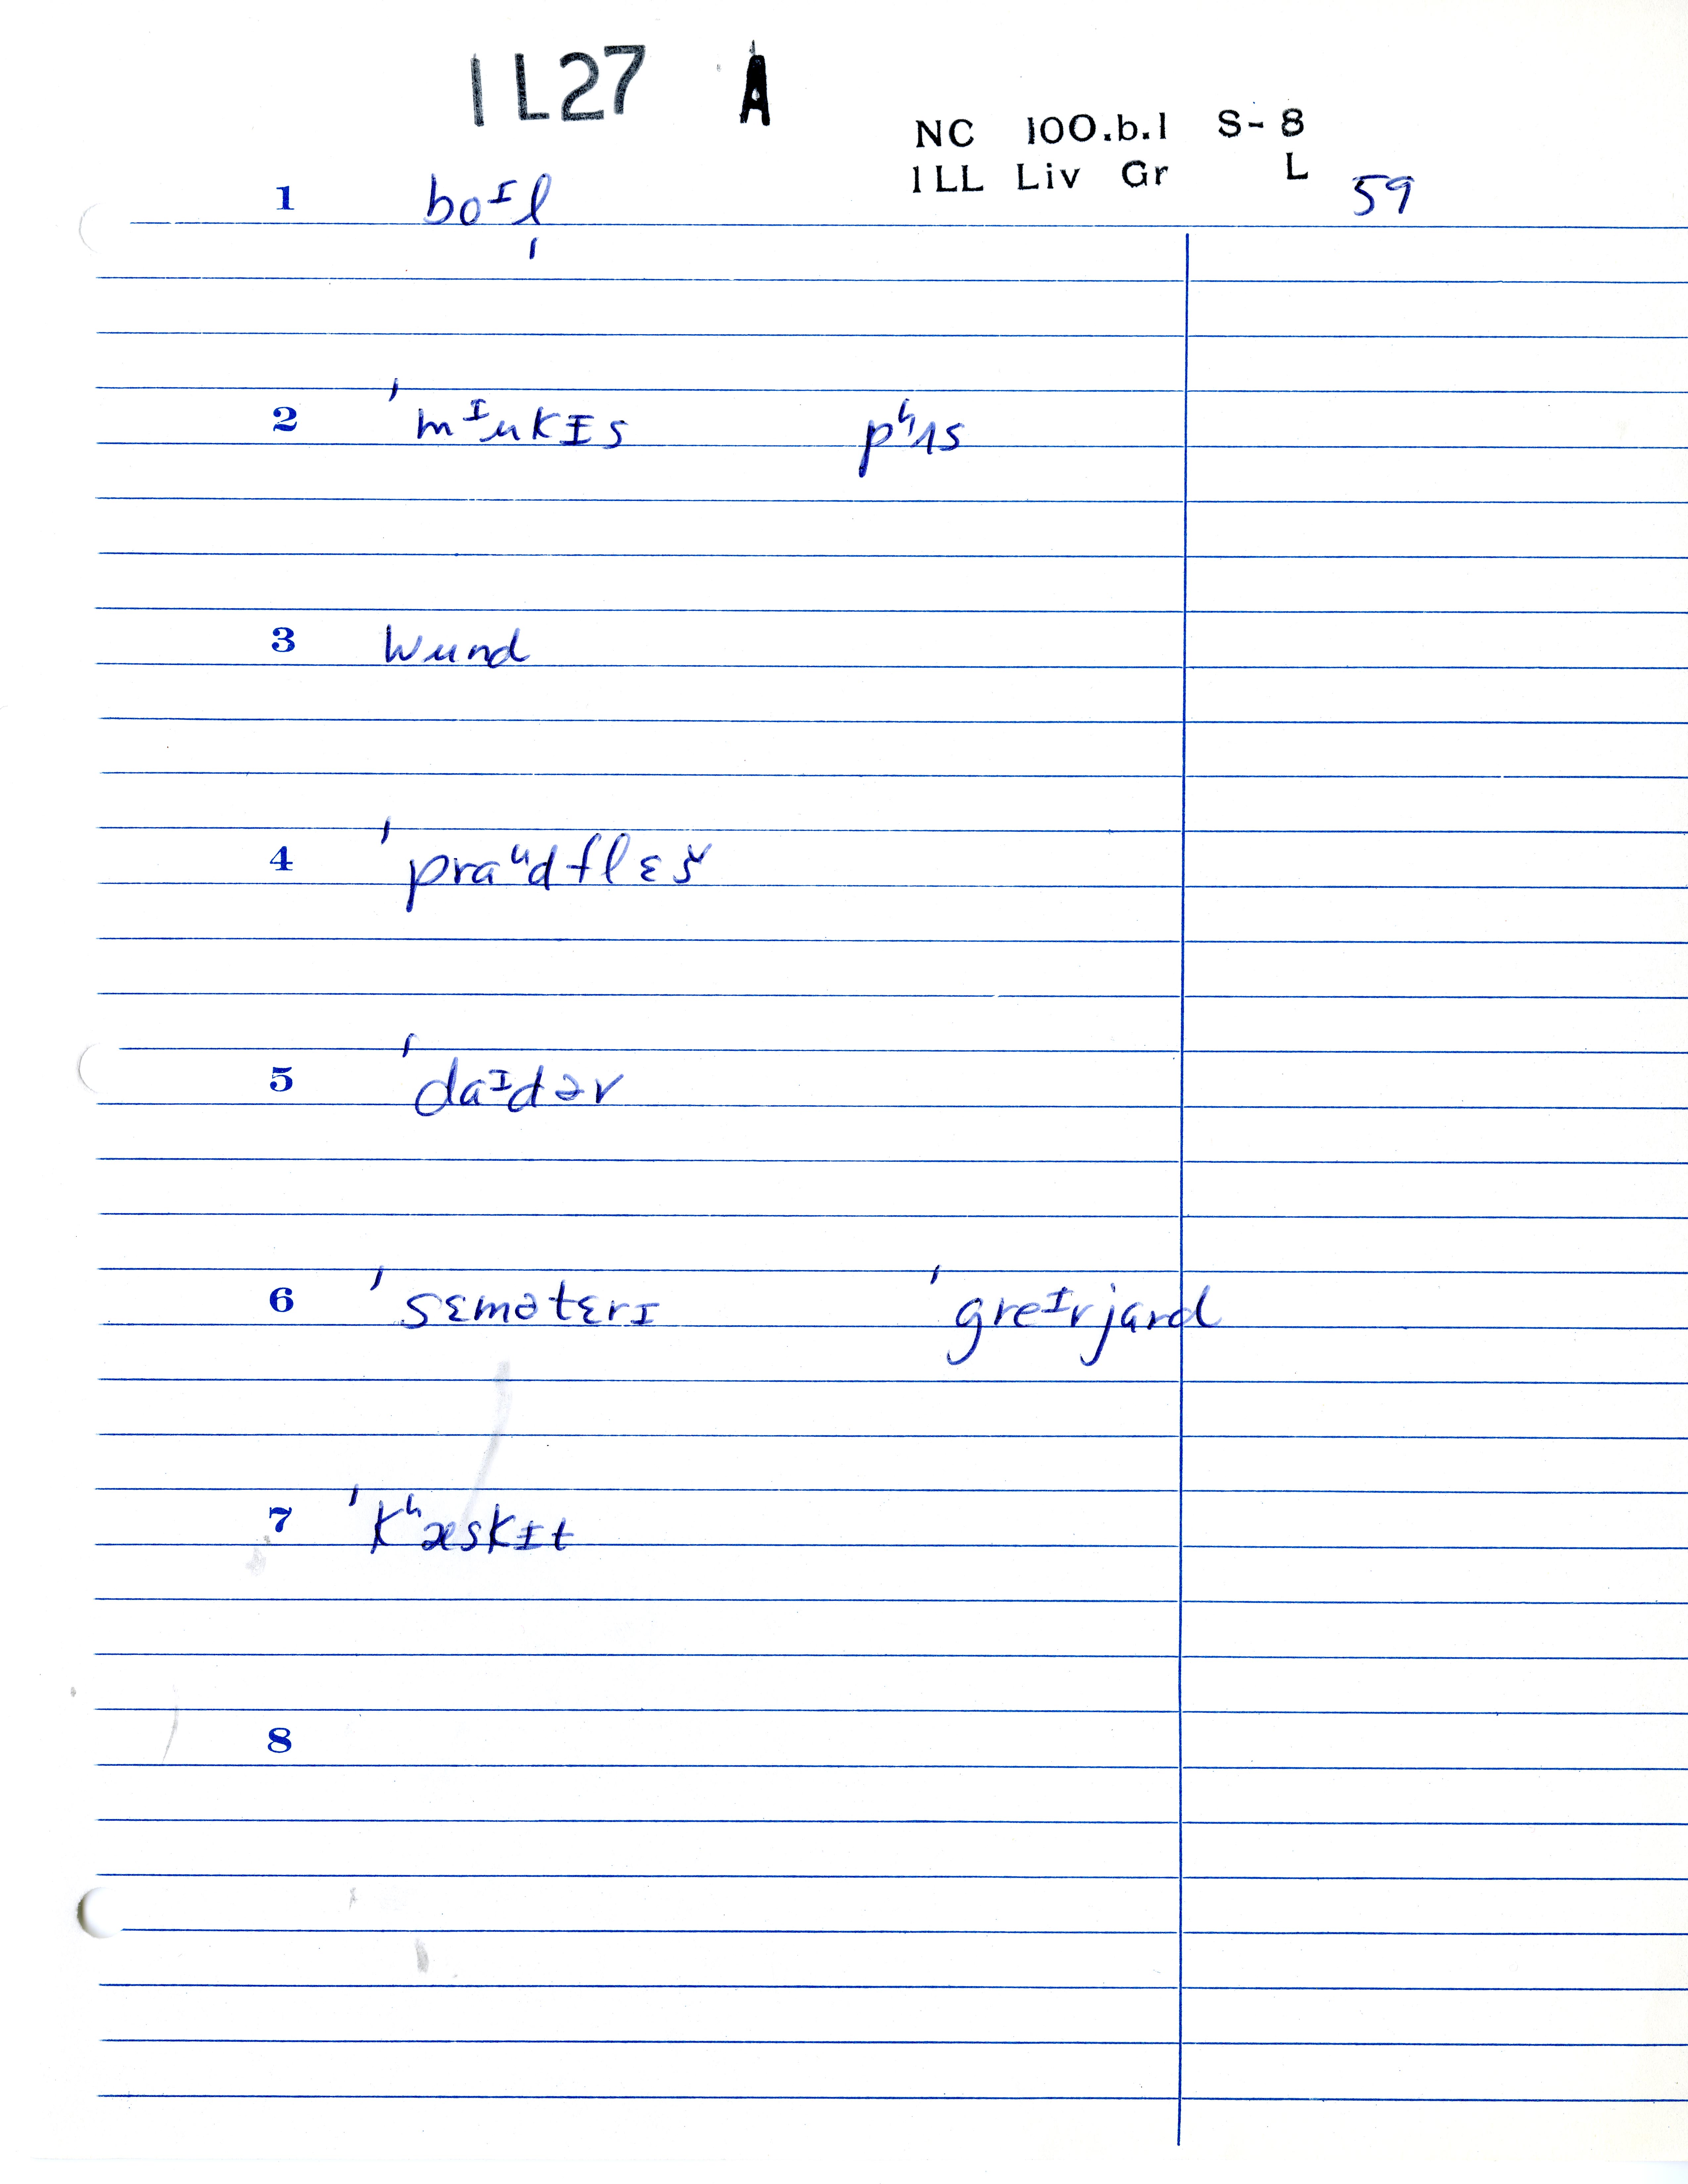 1L27 A
NC 100.b.1 S-8
1LL Liv Gr L 59
1 boᴵl̩
2 ˈmᴵukɪs pʰʌs
3 wund
4 ˈpraᵘdflɛš
5 ˈdaᴵdər
6 ˈsɛmətɛrɪ ˈgreᴵvjard
7 ˈkʰæskɪt
8